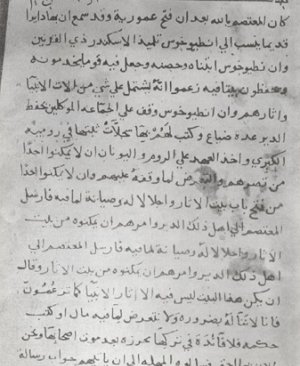 كان المعتصم بالله بعد ان فتح عمورية وقد سمع ان بها ديرا
قديما ينسب الي انطيوخوس تلميذ الاسكندر ذي القرنين
وان انطيوخوس ابتناه وحصنه وجعل فيه قوما يخدمونه
ويحفظون بيتا فيه زعموا انه يشتمل علي شي من الات الانبيا
واثارهم وان انطيوخوس وقف علي الجماعه الموكلين بحفظ
الدير عدة ضياع وكتب لهم بها سجلات ثلثها في روميه
الكبري واخذ العهد علي الروم واليونان ان لا يمكنوا احدا
من والتعرض لما وقفه عليهم وان لا يمكنوا احدا
من فتح باب بيت الاثار اجلالا له وصيانة لما فيه فارسل
المعتصم الي اهل ذلك الدير وامرهم ان يمكنوه من بيت
الاثار واجلالا له وصيانة لما فيه فارسل المعتصم الي
اهل ذلك الدير وامرهم ان يمكنوه من بيت الاثار وقال
ان يكن هذا البيت ليس فيه الا اثار الانبيا كما تزعمون
فانا لا له بضرورة ولا نتعرض لما فيه مال او كتب
حكمه فلا فائدة في تركها محرزه بعد موت اصحابها ونحن
الي ان ياتيهم جواب رسالة